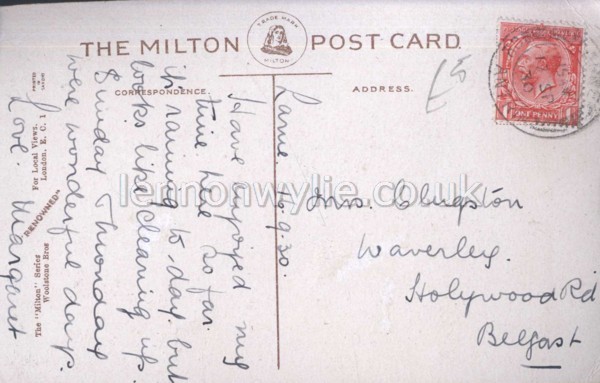 TRADE MARK
MILTON
THE MILTON POST CARD
CORRESPONDENCE.
ADDRESS.
£5
POST PENNY
Larne.
9.30.
Have enjoyed my
time here so far.
it raining to-day but
looks like clearing up.
Sunday & Monday
were wonderful days.
Love. Margaret
Mrs. Clugston
Waverley.
Holywood Rd
Belfast
PRINTED IN
"RENOWNED"
For Local Views.
London, E. C. 1
The "Milton" Series
Woolstone Bros
lennonwylie.co.uk